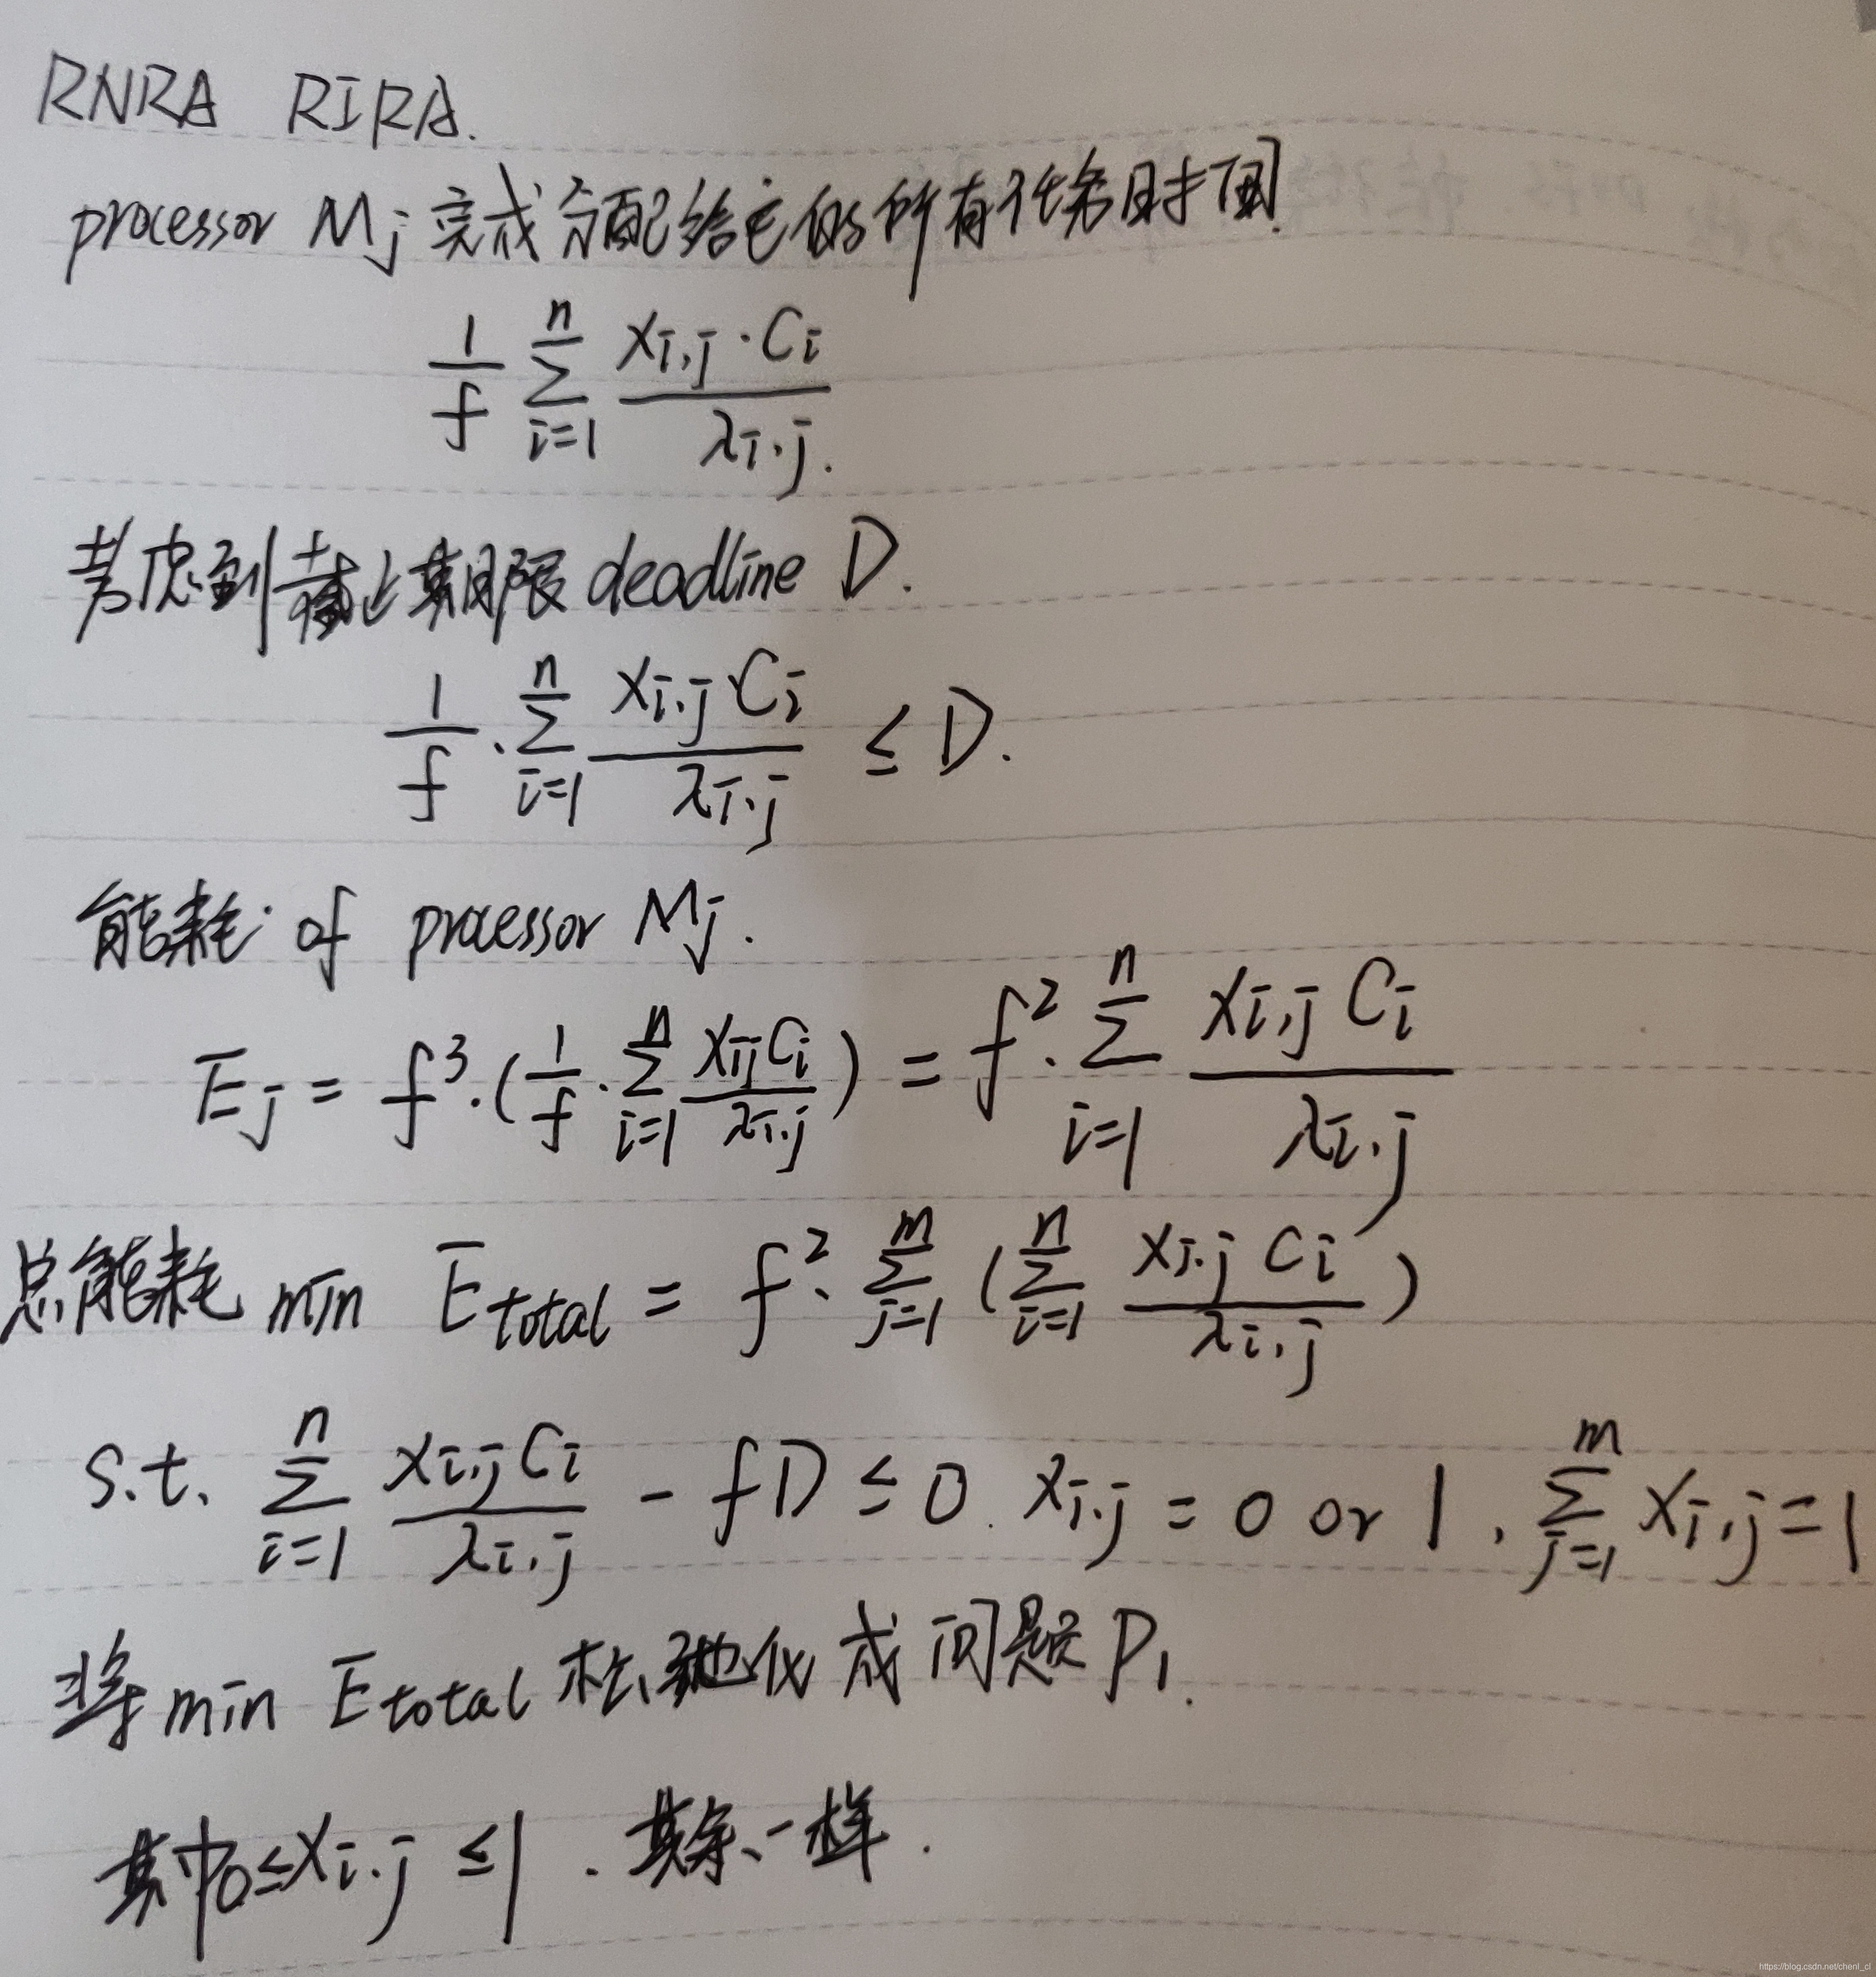 RNRA RIRA.
processor Mj 完成分配给它的所有任务时间
1/f ∑_{i=1}^{n} (x_{i,j} · C_i)/(λ_{i,j}).
考虑到截止期限 deadline D.
1/f · ∑_{i=1}^{n} (x_{i,j} C_i)/(λ_{i,j}) ≤ D.
能耗 of processor Mj.
E_j = f^3 · (1/f · ∑_{i=1}^{n} (x_{ij} C_i)/(λ_{i,j})) = f^2 · ∑_{i=1}^{n} (x_{i,j} C_i)/(λ_{i,j})
总能耗 min E_total = f^2 · ∑_{j=1}^{m} (∑_{i=1}^{n} (x_{i,j} C_i)/(λ_{i,j}))
s.t. ∑_{i=1}^{n} (x_{i,j} C_i)/(λ_{i,j}) - fD ≤ 0. x_{i,j} = 0 or 1, ∑_{j=1}^{m} x_{i,j} = 1
将 min E_total 松弛化成问题 P_1.
其中 0 ≤ x_{i,j} ≤ 1. 其余一样.
https://blog.csdn.net/chenl_cl